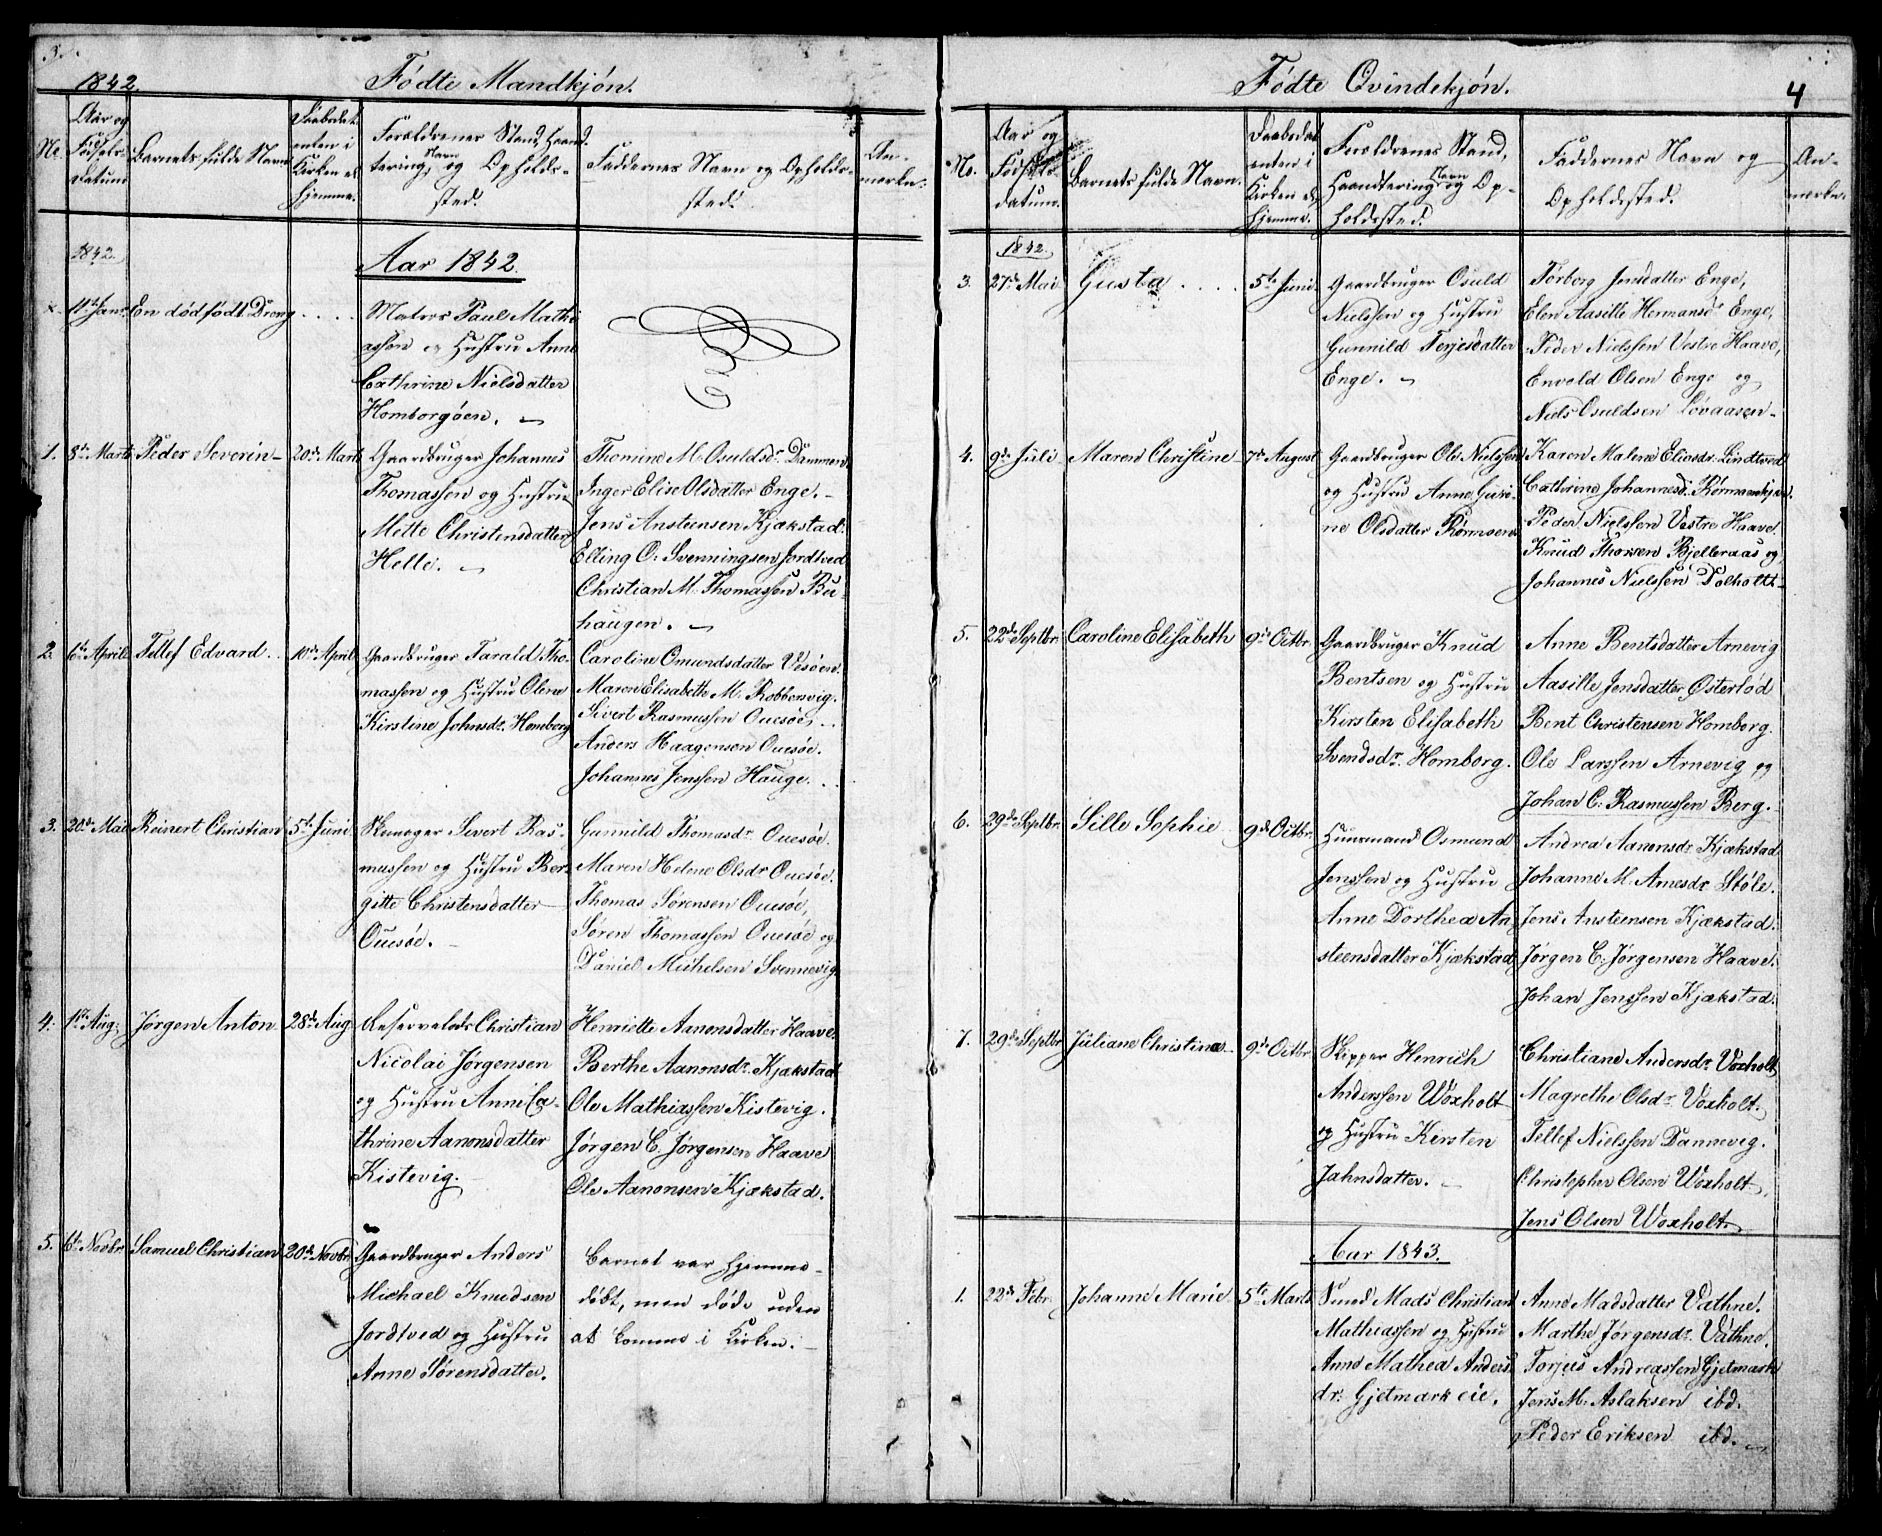 3.
1842.
Fødte Mandkjøn.
No.
Aar og
Fødsels-
Datum
Barnets fulde Navn
Daabsdat.
enten i
Kirken el.
hjemme.
Forældrenes Stand, Haand-
tering, Navn og Opholds-
sted.
Faddernes Navn og Opholds-
sted.
An-
mærkn.
1842.
Aar 1842.
x.
11te Janr.
En dødfødt Dreng
Matros Paul Mathi-
assen og Hustru Anne
Cathrine Nielsdatter
Homborgøen.
1.
8de Marts
Peder Severin
20de Marts
Gaardbruger Johannes
Thomassen og Hustru
Mette Christensdatter
Helle.
Thomine M. Osuldsdr. Dammen
Inger Elise Olsdatter Enge.
Jens Ansteensen Kjækstad.
Elling O. Svenningsen Jordtved
Christian M. Thomassen Bu-
haugen.
2.
6te April
Tellef Edvard
10de April
Gaardbruger Tarald Tho-
massen og Hustru Olene
Kirstine Johnsdr. Homborg
Caroline Omundsdatter Vesøen.
Maren Elisabeth M. Robbersvig.
Sivert Rasmussen Ouesøe,
Anders Haagensen Ouesøe.
Johannes Jenssen Hauge.
3.
20de Mai
Reinert Christian
5te Juni
Skomager Severt Ras-
mussen og Hustru Ber-
gitte Christensdatter
Ouesøe.
Gunnild Thomasdr. Ouesøe.
Maren Helene Olsdr Ouesøe.
Thomas Sørensen Ouesøe,
Søren Thomassen Ouesøe og
Daniel Michelsen Svennevig
4.
1ste Aug.
Jørgen Anton
28de Aug
Reservelods Christian
Nicolai Jørgensen
og Hustru Anne Ca-
thrine Aanonsdatter
Kistevig.
Henriette Aanonsdatter Haave
Berthe Aanonsdr. Kjækstad
Ole Mathiassen Kistevig.
Jørgen C. Jørgensen Haave
Ole Aanonsen Kjækstad.
5.
6te Novbr.
Samuel Christian
20de Novbr.
Gaardbruger Anders
Michael Knudsen
Jordtved og Hustru
Anne Sørensdatter.
Barnet var hjemme-
døbt, men døde uden
at komme i Kirken.
Fødte Qvindekjøn.
4
No.
Aar og
Fødsels-
datum.
Barnets fulde Navn.
Daabsdat.
enten i
Kirken el.
hjemme.
Forældrenes Stand,
Haandtering, Navn og Op-
holdssted.
Faddernes Navn og
Opholdssted.
An-
mærkn.
1842.
3.
27de Mai
Gusta
5te Juni
Gaardbruger Osuld
Nielssen og Hustru
Gunnild Terjesdatter
Enge.
Torborg Jensdatter Enge,
Elen Aasille Hermansdr. Enge,
Peder Nielssen Vestre Haave,
Envold Olsen Enge og
Niels Osuldsen Løvaasen
4.
9de Juli
Maren Christine
7de August
Gaardbruger Ole Nielssen
og Hustru Anne Guri-
ne Olsdatter Rørmoen.
Karen Malene Eliesdr. Lindtved
Cathrine Johannesdr.
Peder Nielssen Vestre Haave.
Knud Thorsen Bjelleraas og
Johannes Nielssen Dolholtt
5.
22de Septbr.
Caroline Elisabeth
9de Octbr.
Gaardbruger Knud
Bentsen og Hustru
Kirsten Elisabeth
Svendsdr. Homborg.
Anne Bentsdatter Arnevig
Aasille Jensdatter Østerlød
Bent Christensen Homborg.
Ole Larssen Arnevig og
Johan C. Rasmussen Berg.
6.
29de Septbr.
Sille Sophie
9de Octbr.
Huusmand Osmund
Jenssen og Hustru
Anne Dorthea An-
steensdatter Kjækstad
Andrea Aanonsdr. Kjækstad
Johanne M. Arnesdr. Støle.
Jens Ansteensen Kjækstad.
Jørgen C. Jørgensen Haave.
Johan Jenssen Kjækstad.
7.
29de Septbr
Juliane Christina
9de Octbr.
Skipper Henrich
Anderssen Woxholt
og Hustru Kirsten
Jahnsdatter.
Christiane Andersdr. Voxholt
Magrethe Olsdr. Voxholt.
Tellef Nielssen Dannevig.
Christopher Olsen Woxholt.
Jens Olsen Woxholt.
Aar 1843.
1.
22de Febr.
Johanne Marie
5te Marts
Smed Mads Christian
Mathiassen og Hustru
Anne Mathea Anders-
dr. Gjetmark eie.
Anne Madsdatter Vathne.
Marthe Jørgensdr. Vathne.
Torjus Andreassen Gjetmark
Jens M. Aslaksen ibd.
Peder Eriksen ibd.